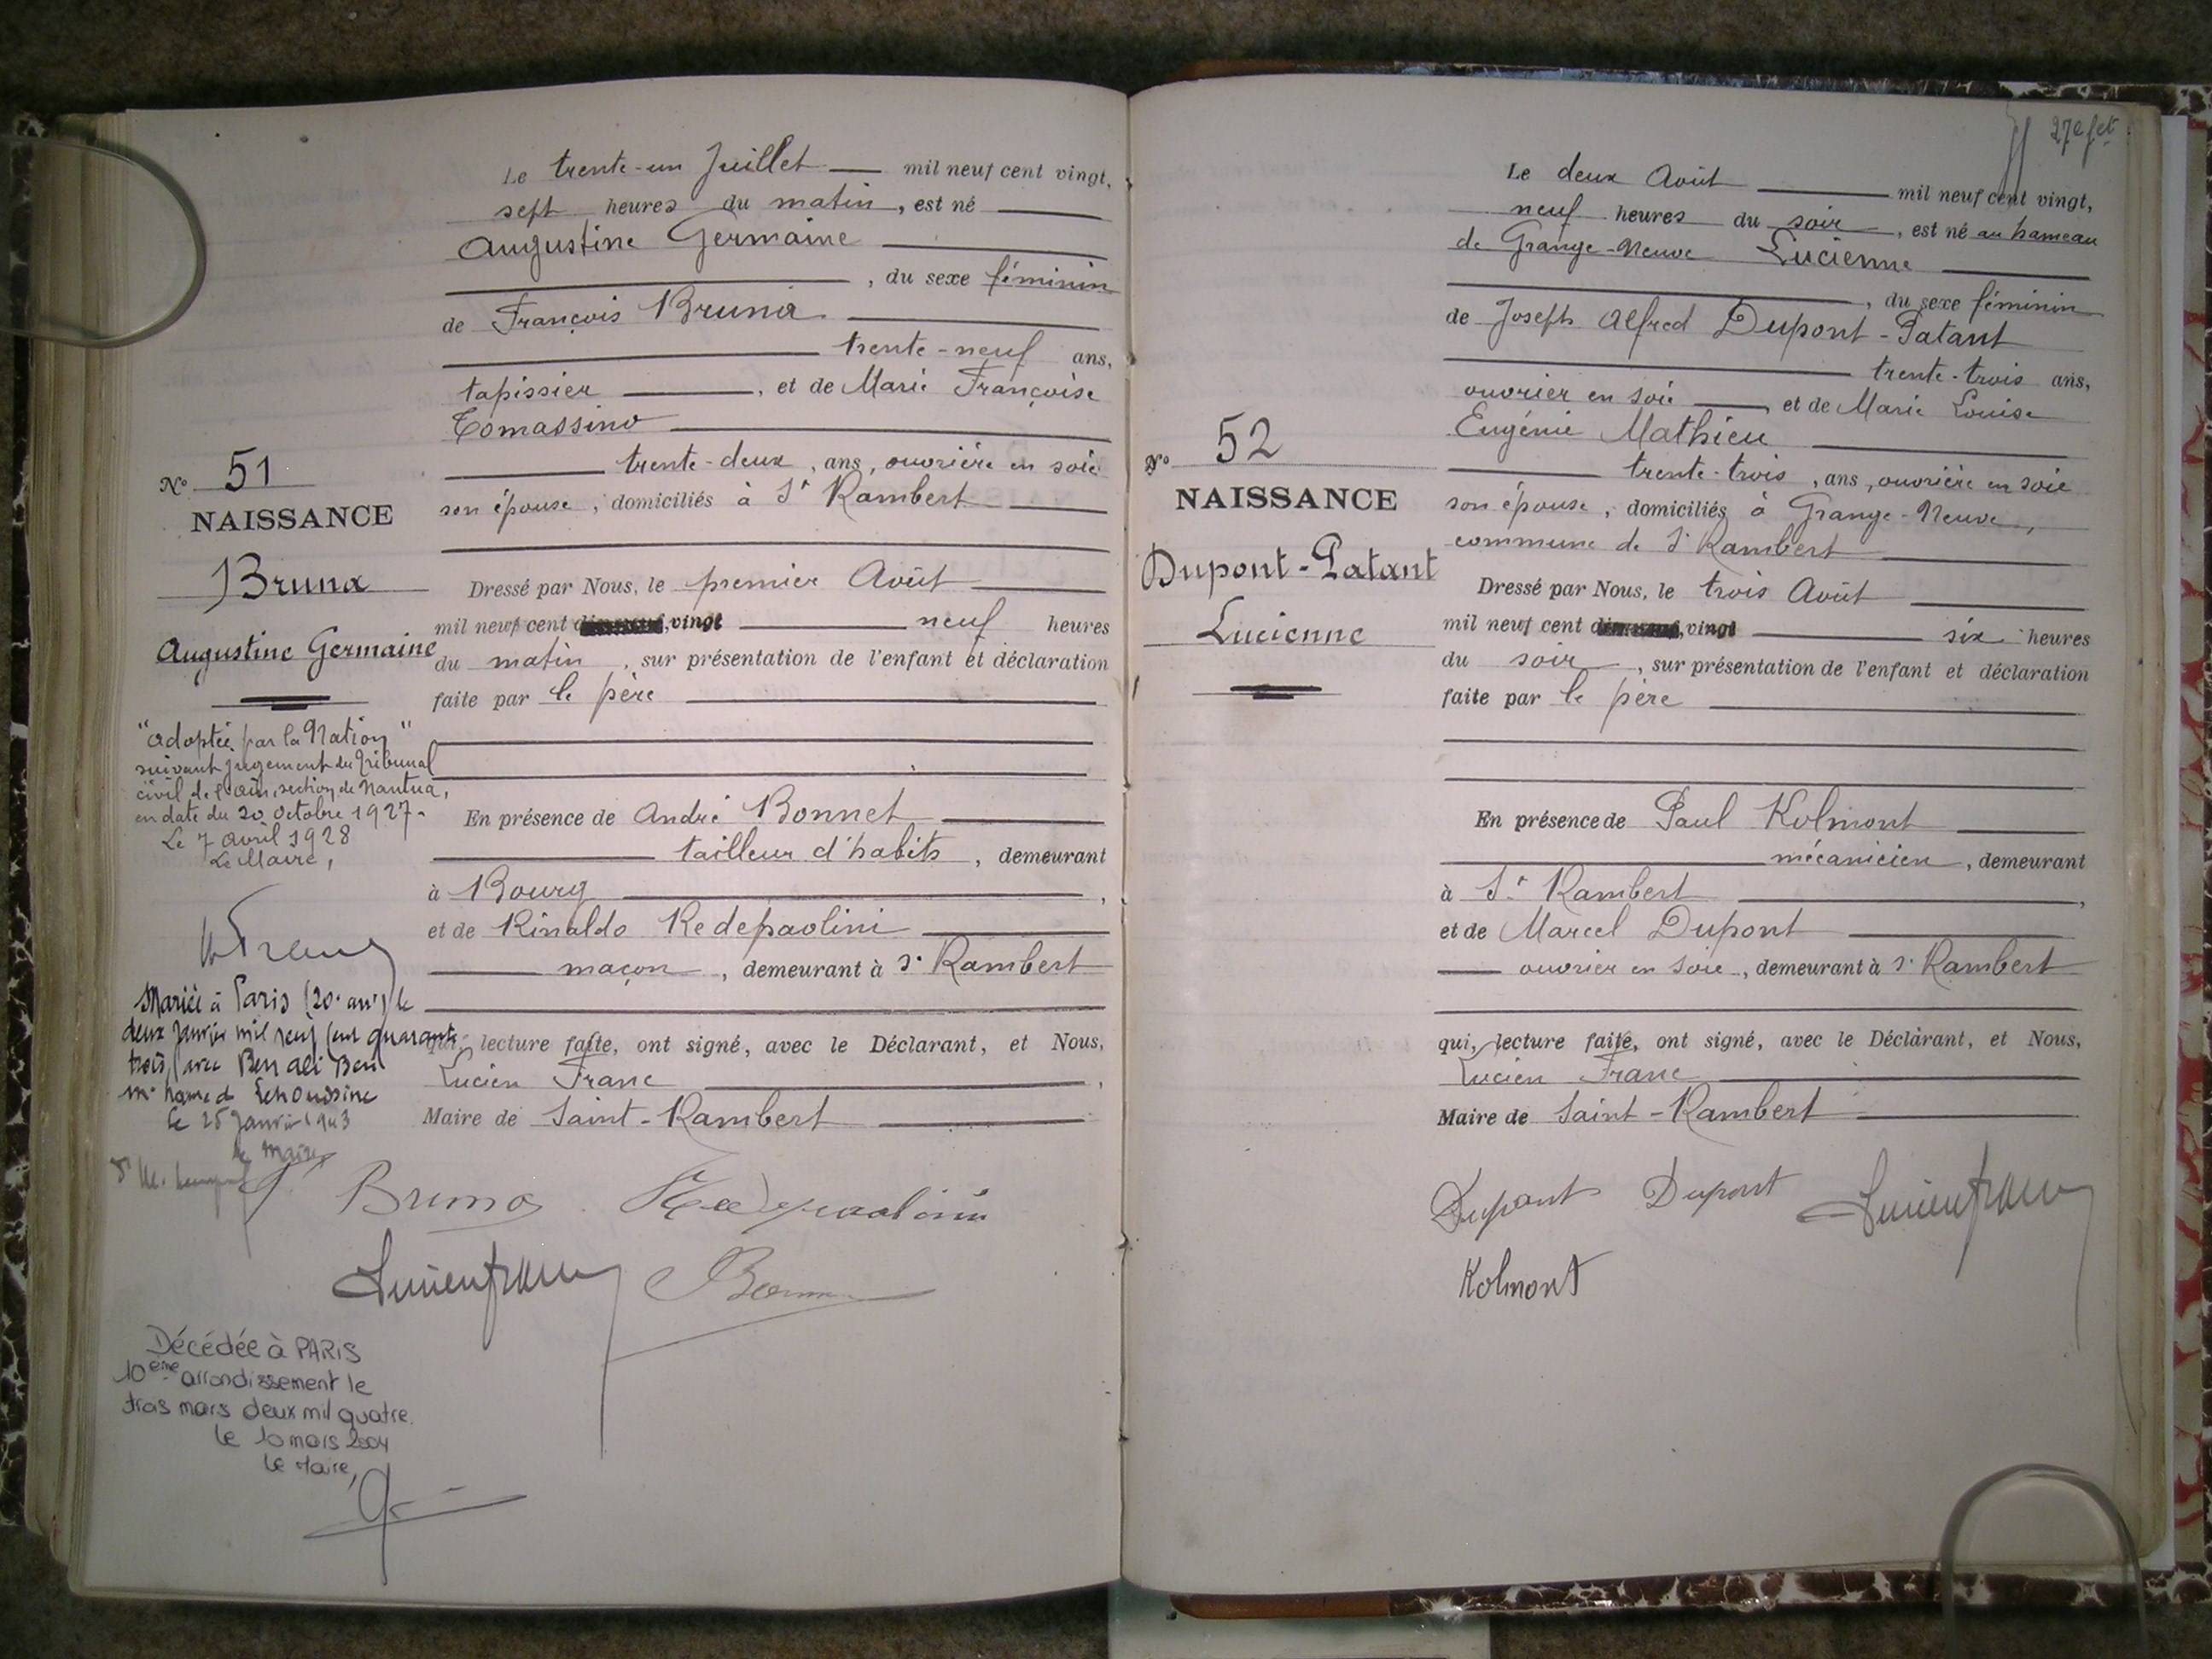 Le trente-un Juillet mil neuf cent vingt,
sept heures du matin, est né
Augustine Germaine
, du sexe féminin
de François Bruna
trente-neuf ans,
tapissier, et de Marie Françoise
Tomassino
trente-deux, ans, ouvrière en soie
son épouse, domiciliés à St Rambert
N° 51
NAISSANCE
Bruna
Augustine Germaine
Dressé par Nous, le premier Août
mil neuf cent vingt neuf heures
du matin, sur présentation de l'enfant et déclaration
faite par le père
"adoptée par la Nation"
suivant jugement du Tribunal
civil de l'Ain, section de Nantua,
en date du 20 octobre 1927.
Le 7 avril 1928
Le Maire,
En présence de André Bonnet
tailleur d'habits, demeurant
à Bourg,
et de Rinaldo Redepaolini
maçon, demeurant à St Rambert
Mariée à Paris (20e arrt) le
deux janvier mil neuf cent quarante
trois avec Ben ali Ben
le 25 Janvier 1943
le Maire
qui, lecture faite, ont signé, avec le Déclarant, et Nous,
Lucien Franc,
Maire de Saint-Rambert
Bruna Redepaolini
Lucien Franc
Décédée à PARIS
10ème arrondissement le
trois mars deux mil quatre.
Le 10 mars 2004
Le Maire,
27e fet
Le deux Août mil neuf cent vingt,
neuf heures du soir, est né au hameau
de Grange-Neuve Lucienne
, du sexe féminin
de Joseph Alfred Dupont-Patant
trente-trois ans,
ouvrier en soie, et de Marie Louise
Eugénie Mathieu
trente-trois, ans, ouvrière en soie
son épouse, domiciliés à Grange-Neuve,
commune de St Rambert
N° 52
NAISSANCE
Dupont-Patant
Lucienne
Dressé par Nous, le trois Août
mil neuf cent vingt six heures
du soir, sur présentation de l'enfant et déclaration
faite par le père
En présence de Paul Kolmont
mécanicien, demeurant
à St Rambert,
et de Marcel Dupont
ouvrier en soie, demeurant à St Rambert
qui, lecture faite, ont signé, avec le Déclarant, et Nous,
Lucien Franc
Maire de Saint-Rambert
Dupont Dupont Lucien Franc
Kolmont